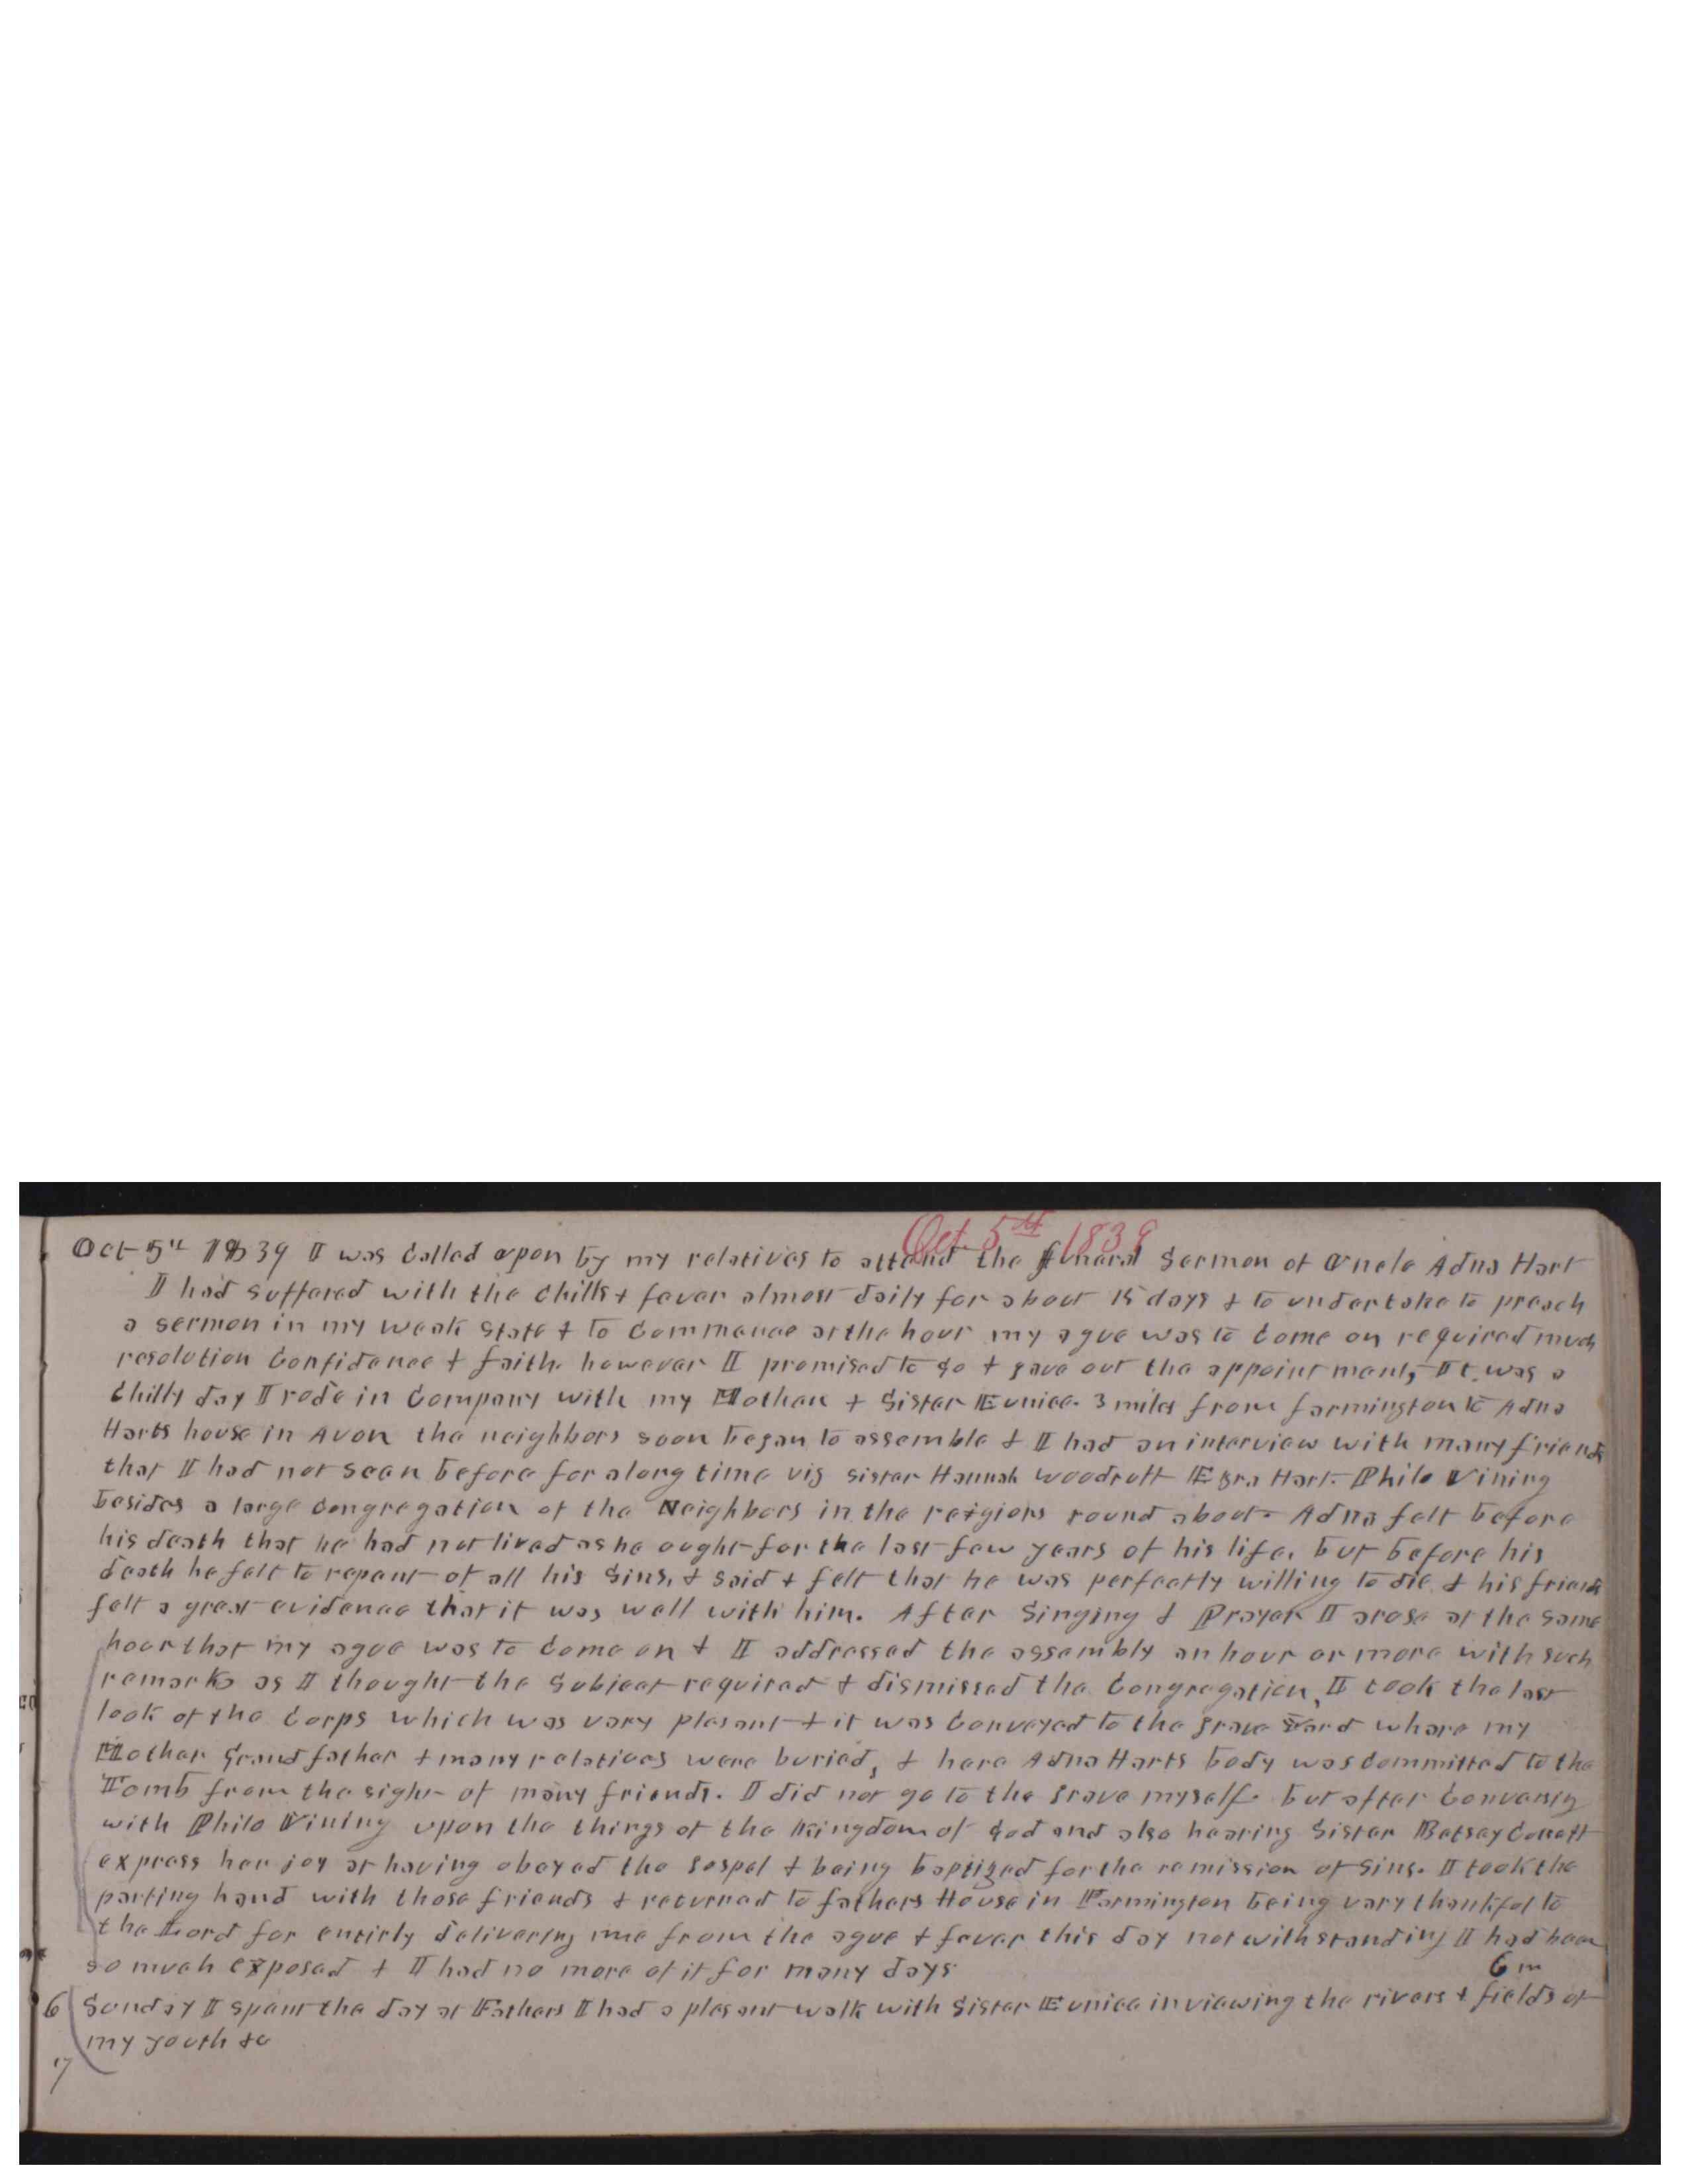 Oct 5th 1838
Oct 5th 1839 I was Called upon by my relatives to attend the funeral Sermon of Uncle Adna Hart
I had suffered with the chills & fever almost daily for about 15 days & to undertake to preach
a sermon in my weak State & to Commence at the hour my ague was to Come on required much
resolution Confidence & faith. however I promised to go & gave out the appointment, It was a
Chilly day I rode in Company with my Mother & Sister Eunice. 3 miles from farmington to Adna
Harts house in Avon the neighbors soon began to assemble & I had an interview with many friends
that I had not seen before for along time viz sister Hannah Woodruff Ezra Hart. Philo Vining
besides a large Congregation of the Neighbors in the reigions round about. Adna felt before
his death that he had not lived as he ought for the last few years of his life. but before his
death he felt to repent of all his Sins, & said & felt that he was perfectly willing to die & his friends
felt a great evidence that it was well with him. After Singing & Prayer I arose at the same
hour that my ague was to Come on & I addressed the assembly an hour or more with such
remarks as I thought the Subject required & dismissed the Congregation, I took the last
look of the Corps which was very plesant & it was Conveyed to the grave Yard whare my
Mother Grandfather & many relatives were buried, & here Adna Harts body was Committed to the
Tomb from the sight of many friends. I did not go to the grave myself. but after Conversing
with Philo Vining upon the things of the Kingdom of God and also hearing Sister Betsey Cossett
express her joy at having obeyed the gospel & being baptized for the remission of Sins. I took the
parting hand with those friends & returned to fathers House in Farmington being very thankful to
the Lord for entirly delivering me from the ague & fever this day notwithstanding I had been
so much exposed & I had no more of it for many days
6 m
6 Sunday I spent the day at Fathers I had a plesant walk with Sister Eunice in viewing the rivers & fields of
my youth &c
7